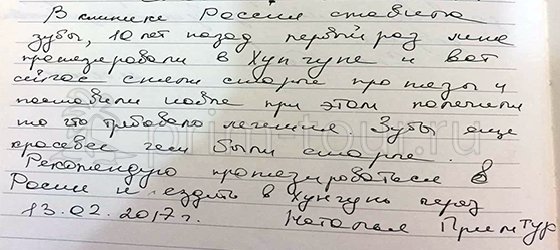 В клинике России ставила
зубы, 10 лет назад первый раз мне
протезировали в Хунчуне и вот
сейчас сняли старые протезы и
поставили новые при этом полечили
то что требовало лечения Зубы еще
красивее чем были старые.
Рекомендую протезироваться в
России и ездить в Хунчунь через
13.02.2017 г. Наталья ПримТур
prim-tour.ru